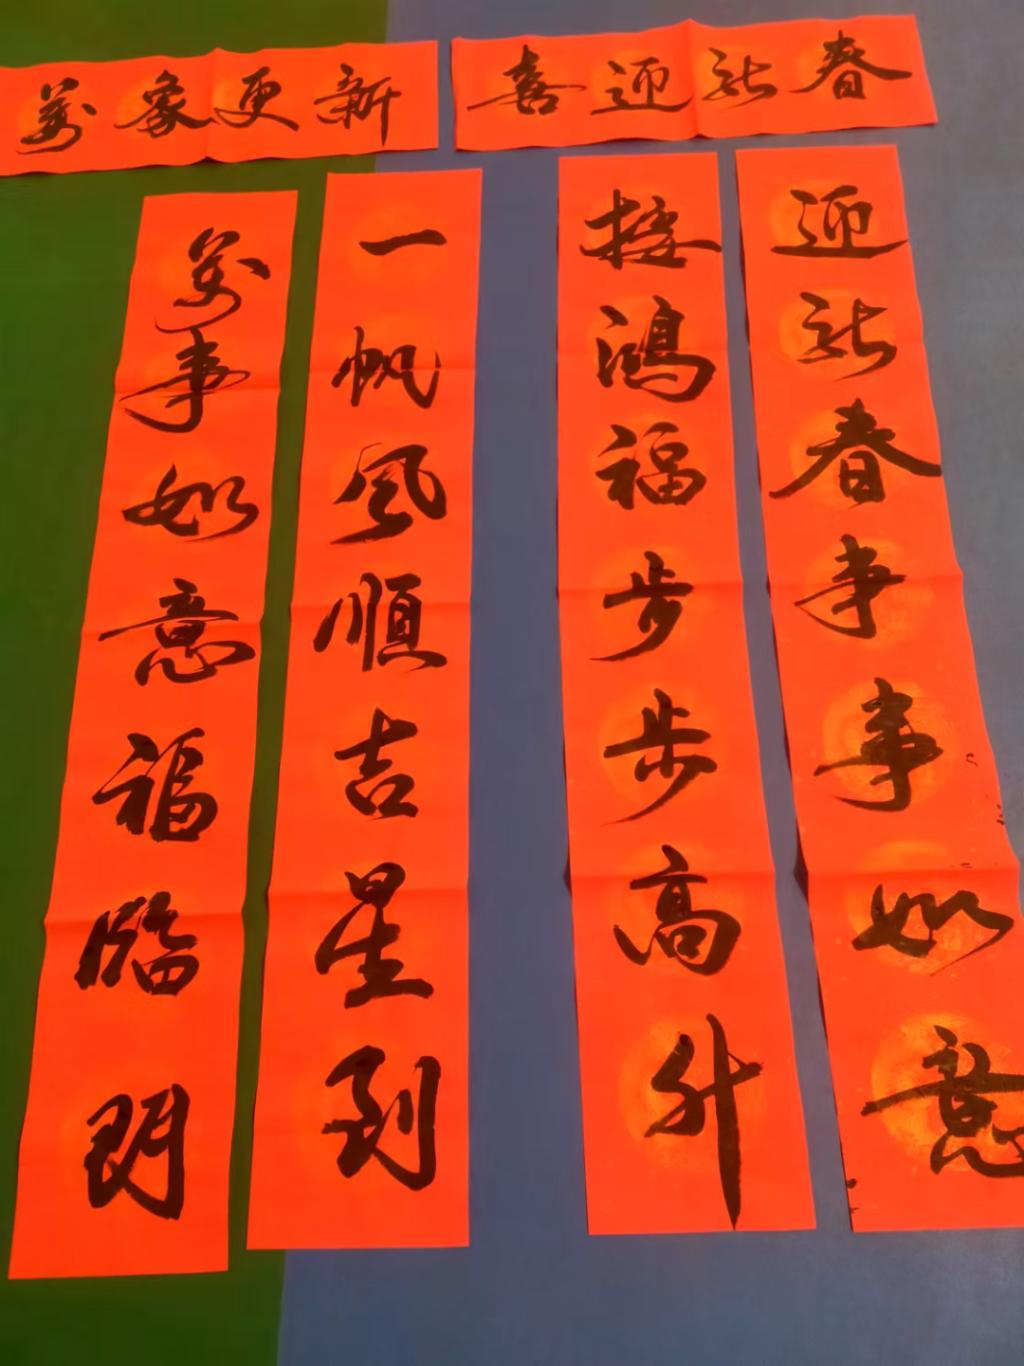 萬象更新
喜迎新春
迎新春事事如意
接鴻福步步高升
一帆風順吉星到
萬事如意福臨門